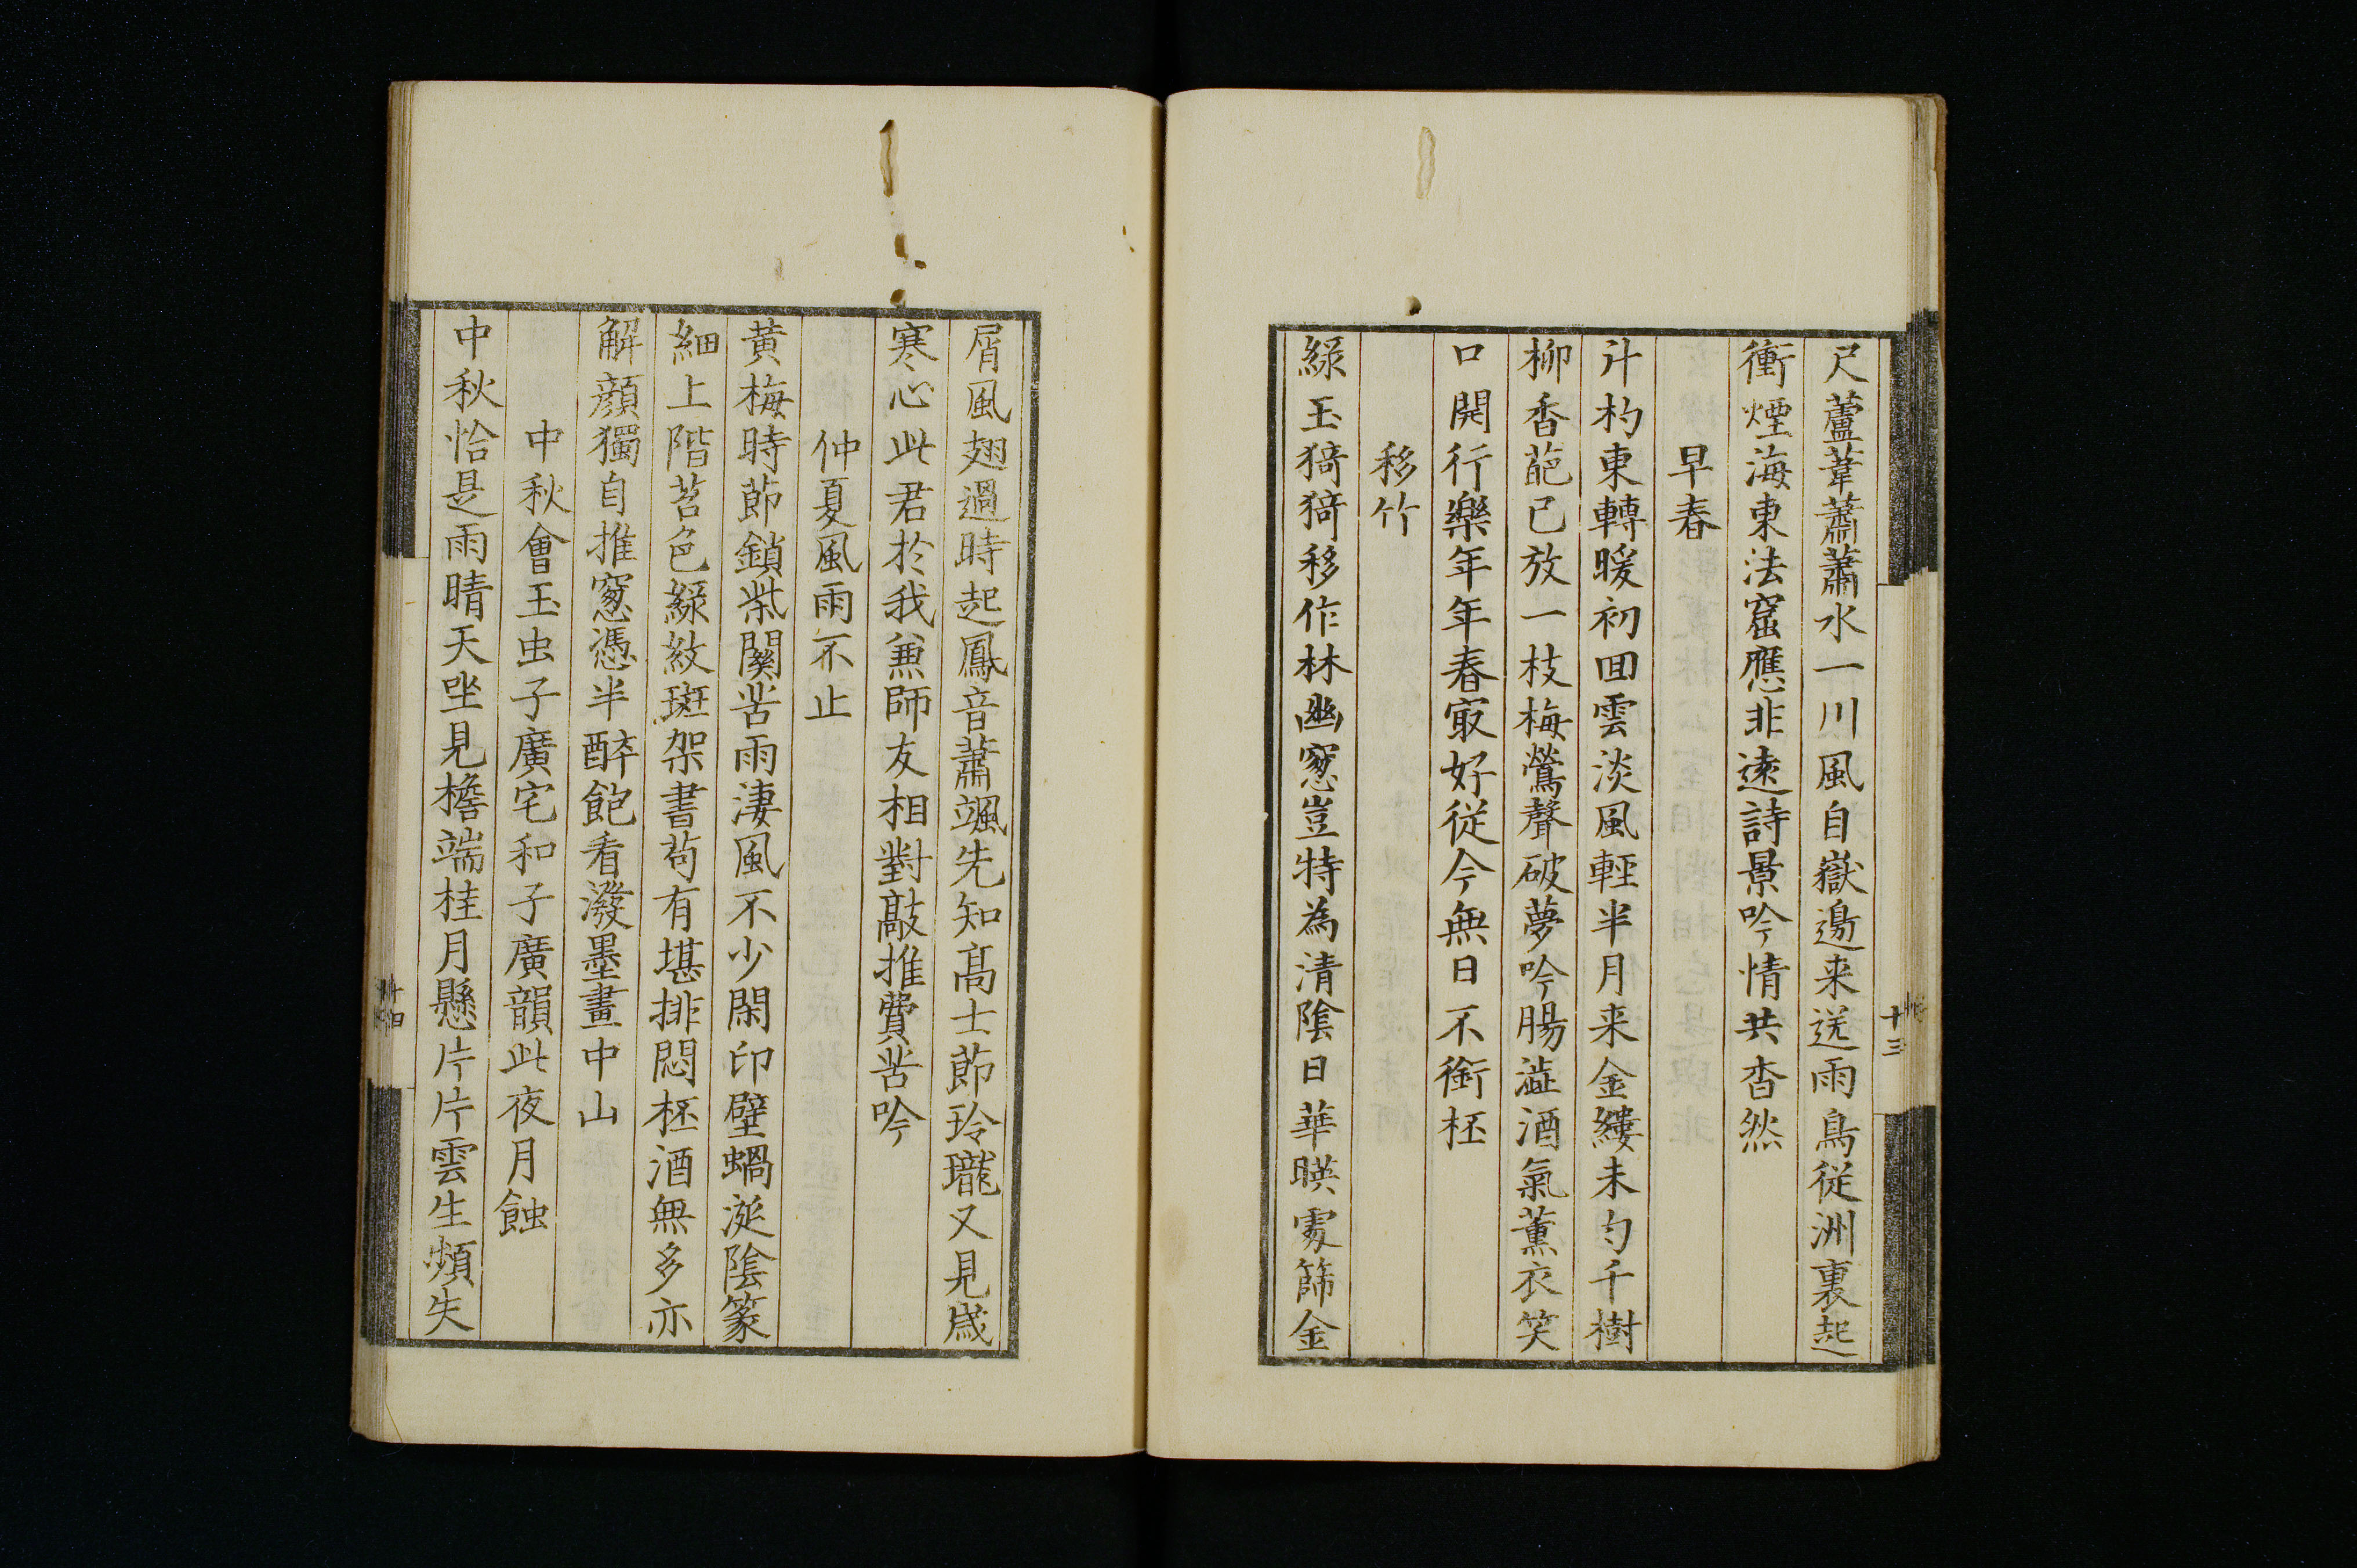 尺蘆葦蕭蕭水一川風自嶽邊来送雨鳥従洲裏起
衝煙海東法窟應非遠詩景吟情共杳然
早春
斗杓東轉暖初回雲淡風輕半月来金縷未勻千樹
柳香葩已放一枝梅鶯聲破夢吟腸澁酒氣薫衣笑
口開行樂年年春冣好従今無日不銜杯
移竹
緑玉猗猗移作林幽窓豈特為清陰日華暎處篩金
十三
屑風翅過時起鳳音蕭颯先知髙士節玲瓏又見歳
寒心此君於我兼師友相對敲推費苦吟
仲夏風雨不止
黄梅時節鎖柴關苦雨淒風不少閑印壁蝸涎陰篆
細上階苔色緑紋斑架書苟有堪排悶杯酒無多亦
解顔獨自推窓憑半醉飽看潑墨畫中山
中秋會玉虫子廣宅和子廣韻此夜月蝕
中秋恰是雨晴天坐見檐端桂月懸片片雲生頻失